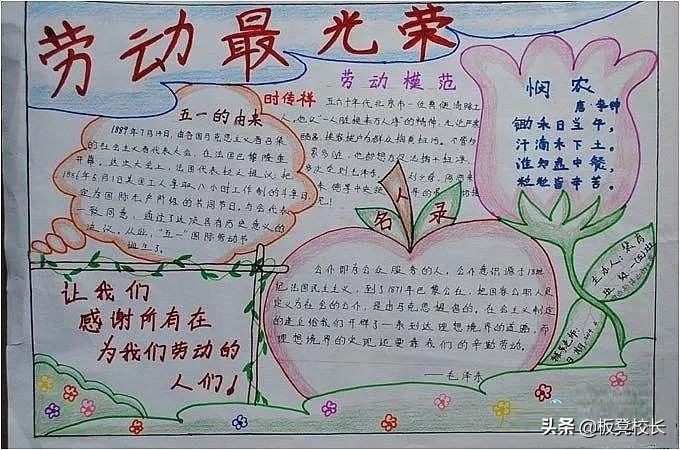 劳动最光荣
五一的由来
1889年7月14日,由各国马克思主义者召集
的社会主义者代表大会,在法国巴黎隆重
开幕。这次大会上,法国代表拉人提议:把
1886年5月1日美国工人争取八小时工作制的斗争日,
定为国际无产阶级的共同节日。与会代表
一致同意,通过了这项具有历史意义的
决议。从此,“五一”国际劳动节
诞生了。
劳动模范
时传祥
五六十年代北京市一位典使清除工
人。他以“一人脏换来万人净”的精神,无论严寒
悯农
唐·李绅
锄禾日当午,
汗滴禾下土。
谁知盘中餐,
粒粒皆辛苦。
名人录
公仆即为公众服务的人,公仆意识源于18世
纪法国民主主义,到了1871年巴黎公社,把国家公职人员
定义为社会的公仆,是由马克思提出的,社会主义制定
的建立给我们开辟了一条到达理想境界的道路,而
理想境界的实现还要靠我们的辛勤劳动。
——毛泽东
让我们
感谢所有在
为我们劳动的
人们!
主办人:
头条 @板凳校长